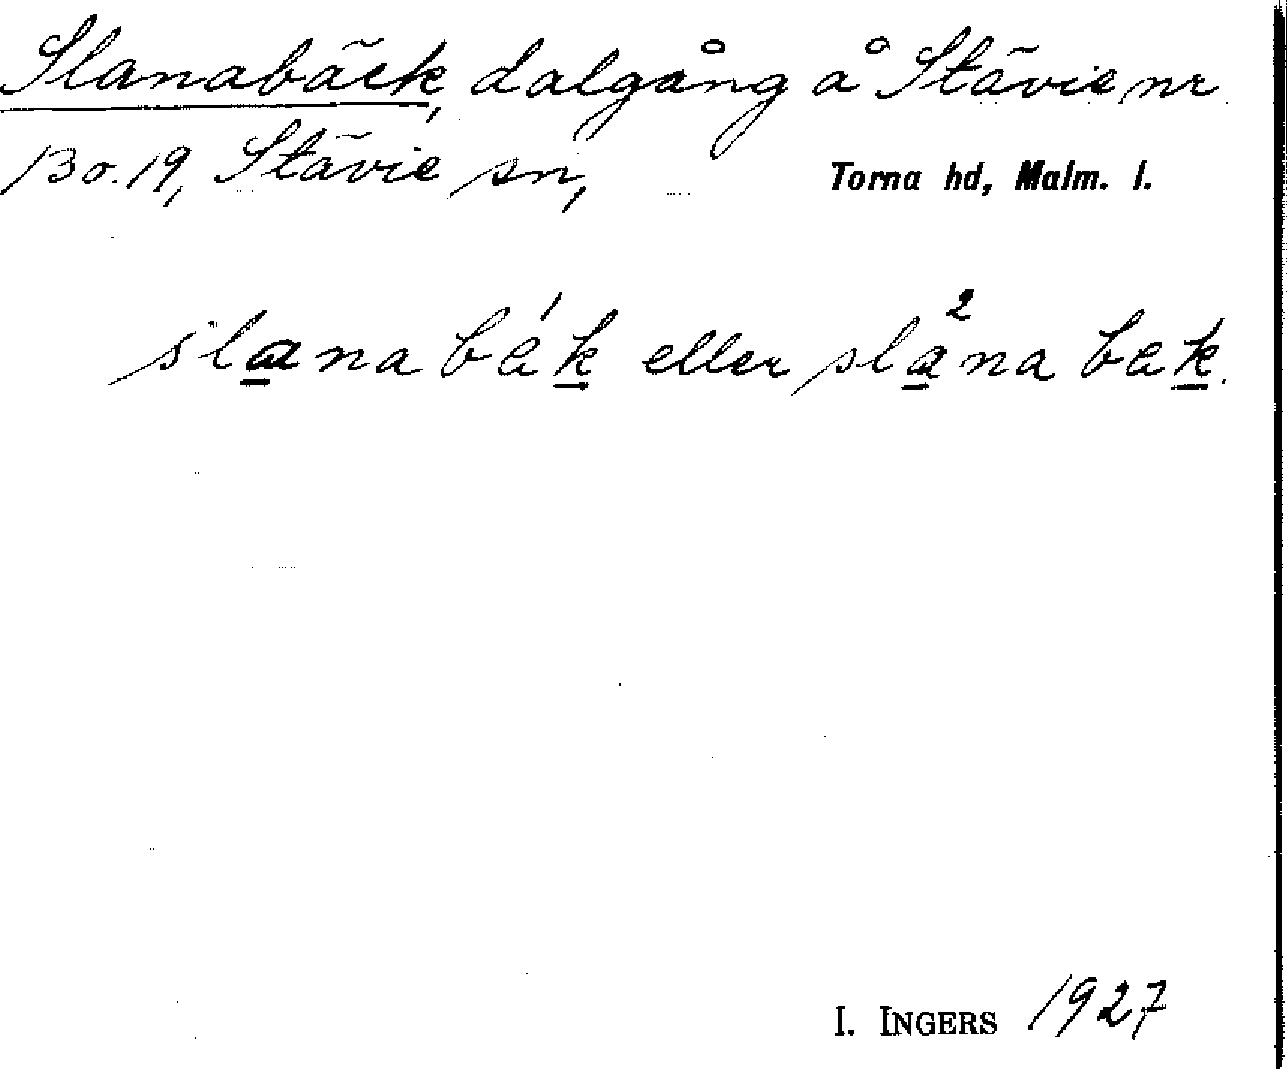 Slanabäck, dalgång å Stävie nr
13 o. 19, Stävie sn, Torna hd, Malm. l.
slana bék eller slana² bek.
I. INGERS 1927